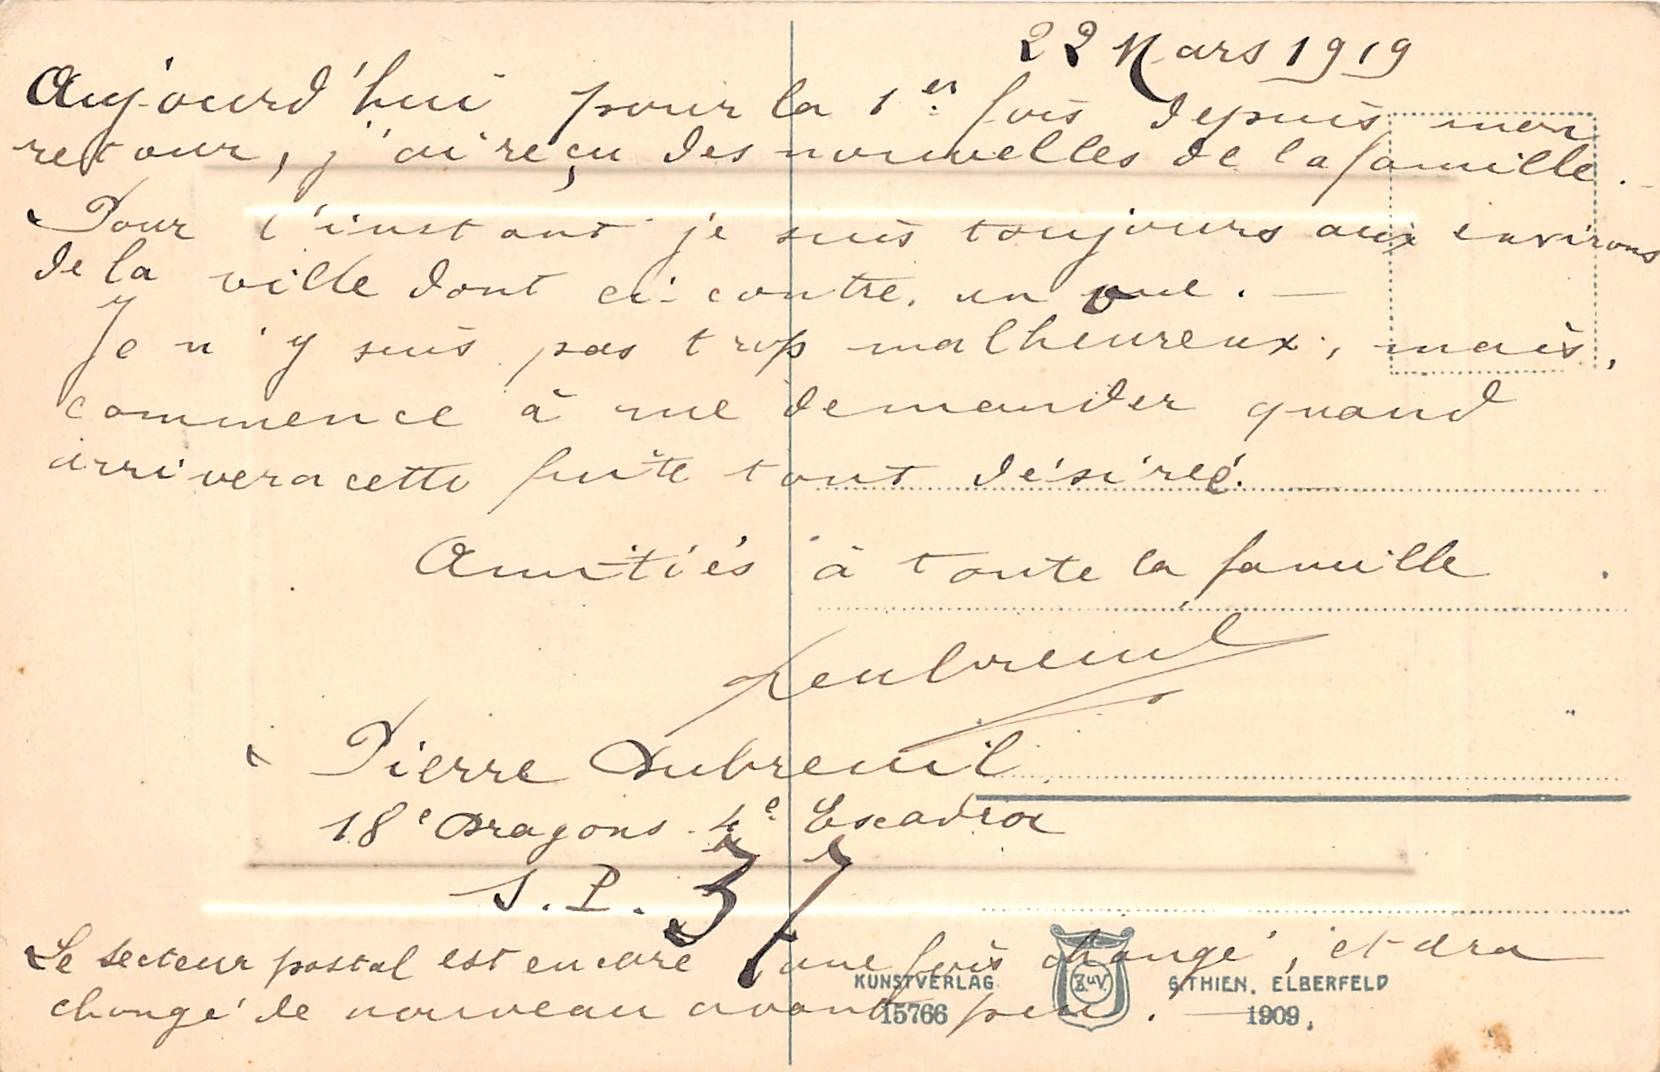 22 Mars 1919
Aujourd'hui pour la 1er fois depuis mon
retour, j'ai reçu des nouvelles de la famille. -
Pour l'instant je suis toujours aux environs
de la ville dont ci-contre, un vue. —
Je n'y suis pas trop malheureux, mais,
commence à me demander quand
arrivera cette fuite tant désirée. —
Amitiés à toute la famille.
Pierre Dubreuil
18e Dragons 4e Escadron
S. P. 37
Le secteur postal est encore une fois changé, et sera
changé de nouveau avant peu. —
KUNSTVERLAG Z.u.V. G. THIEN, ELBERFELD
15766 1909.